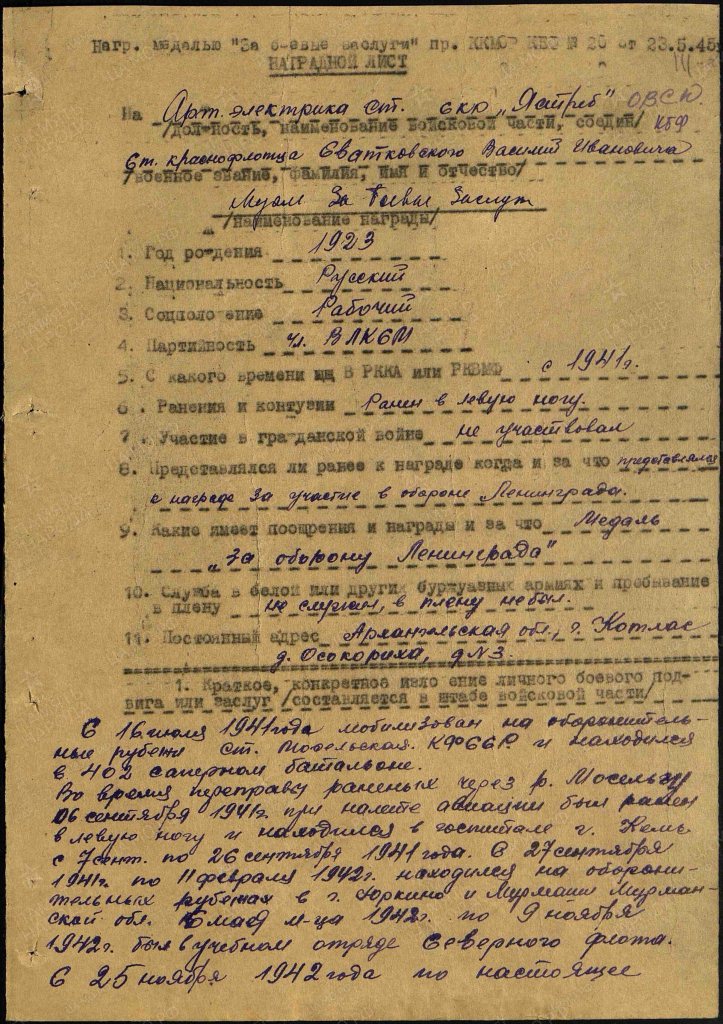 Нагр. медалью "За боевые заслуги" пр. ККМОР КБФ № 20 от 23.5.45г
НАГРАДНОЙ ЛИСТ
На Арт. электрика ст. скр „Ястреб" ОВСП
/должность, наименование войсковой части, соедин/ КБФ
Ст. краснофлотца Сватковского Василий Ивановича
/военное звание, фамилия, имя и отчество/
Медаль За боевые Заслуги
/наименование награды/
1. Год рождения 1923
2. Национальность Русский
3. Соцположение Рабочий
4. Партийность чл. ВЛКСМ
5. С какого времени в РККА или РКВМФ с 1941г.
6. Ранения и контузии Ранен в левую ногу.
7. Участие в гражданской войне не участвовал
8. Представлялся ли ранее к награде когда и за что представлялся
к награде За участие в обороне Ленинграда.
9. Какие имеет поощрения и награды и за что Медаль
„За оборону Ленинграда"
10. Служба в белой или других буржуазных армиях и пребывание
в плену не служил, в плену не был.
11. Постоянный адрес Архангельская обл., г. Котлас
д. Осокориха, д№3.
1. Краткое, конкретное изложение личного боевого под-
вига или заслуг /составляется в штабе войсковой части/
С 16 июля 1941 года мобилизован на оборонитель-
ные рубежи ст. КФССР и находился
в 402 саперном батальоне.
Во время переправы раненых через р.
06 сентября 1941г. при налете авиации был ранен
в левую ногу и находился в госпитале г. Кемь
с 7 сент. по 26 сентября 1941 года. С 27 сентября
1941г. по 11 февраля 1942г. находился на оборони-
тельных рубежах в г. и Мурмаши Мурман-
ской обл. С мая м-ца 1942г. по 9 ноября
1942г. был в учебном отряде Северного флота.
С 25 ноября 1942 года по настоящее